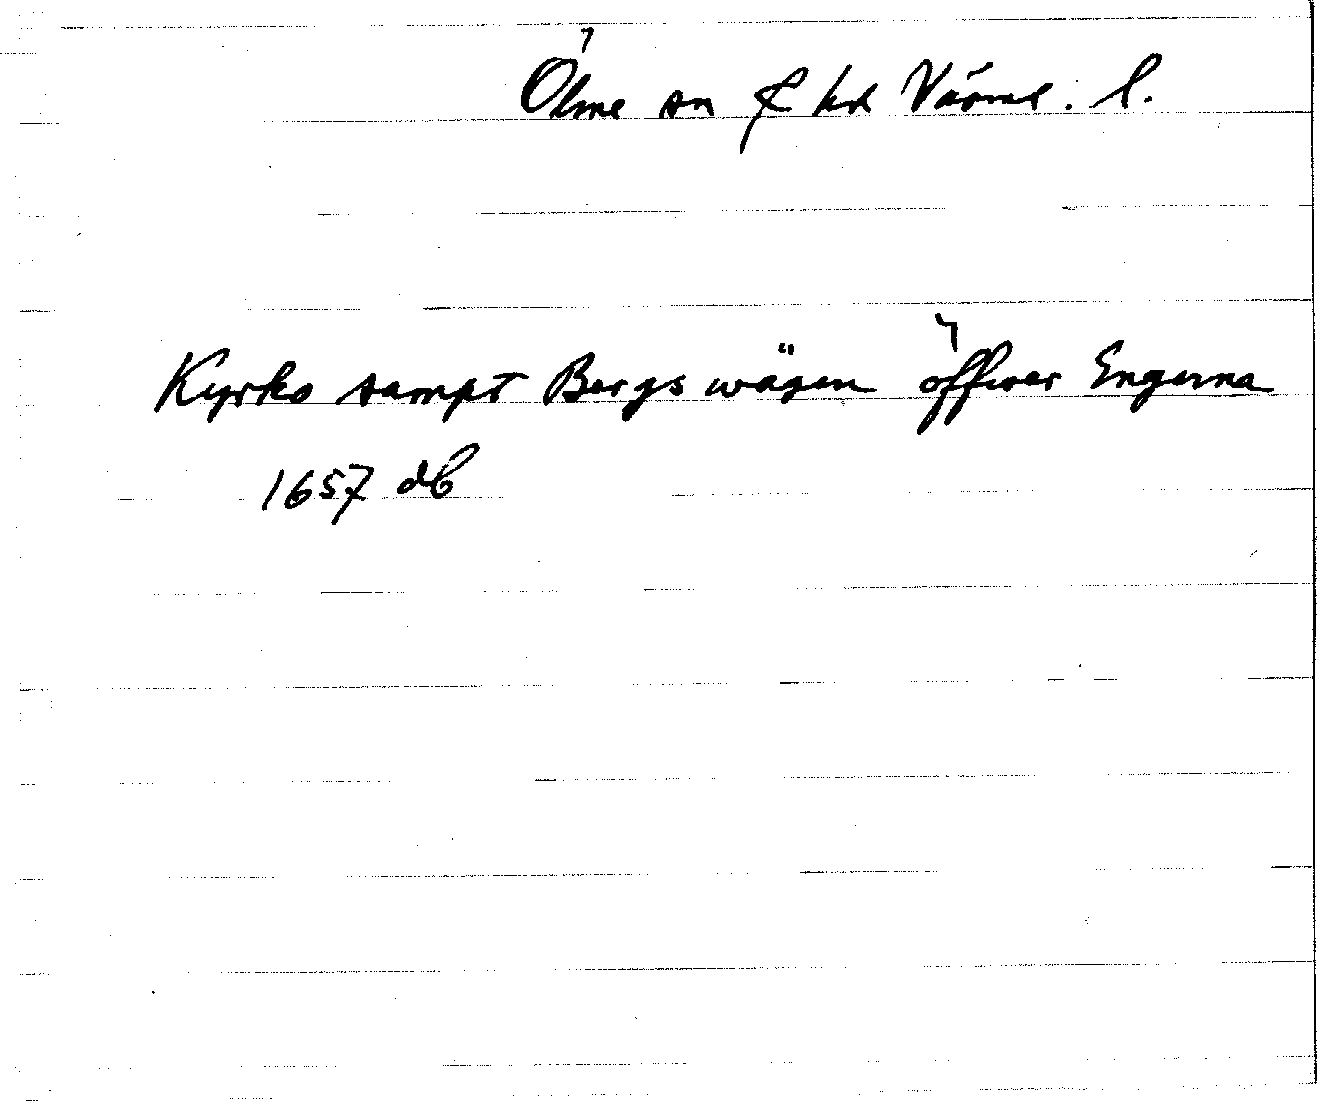 Ölme sn & hd Värml. l.
Kyrko sampt Bergs wägen öffwer Engerna
1657 db